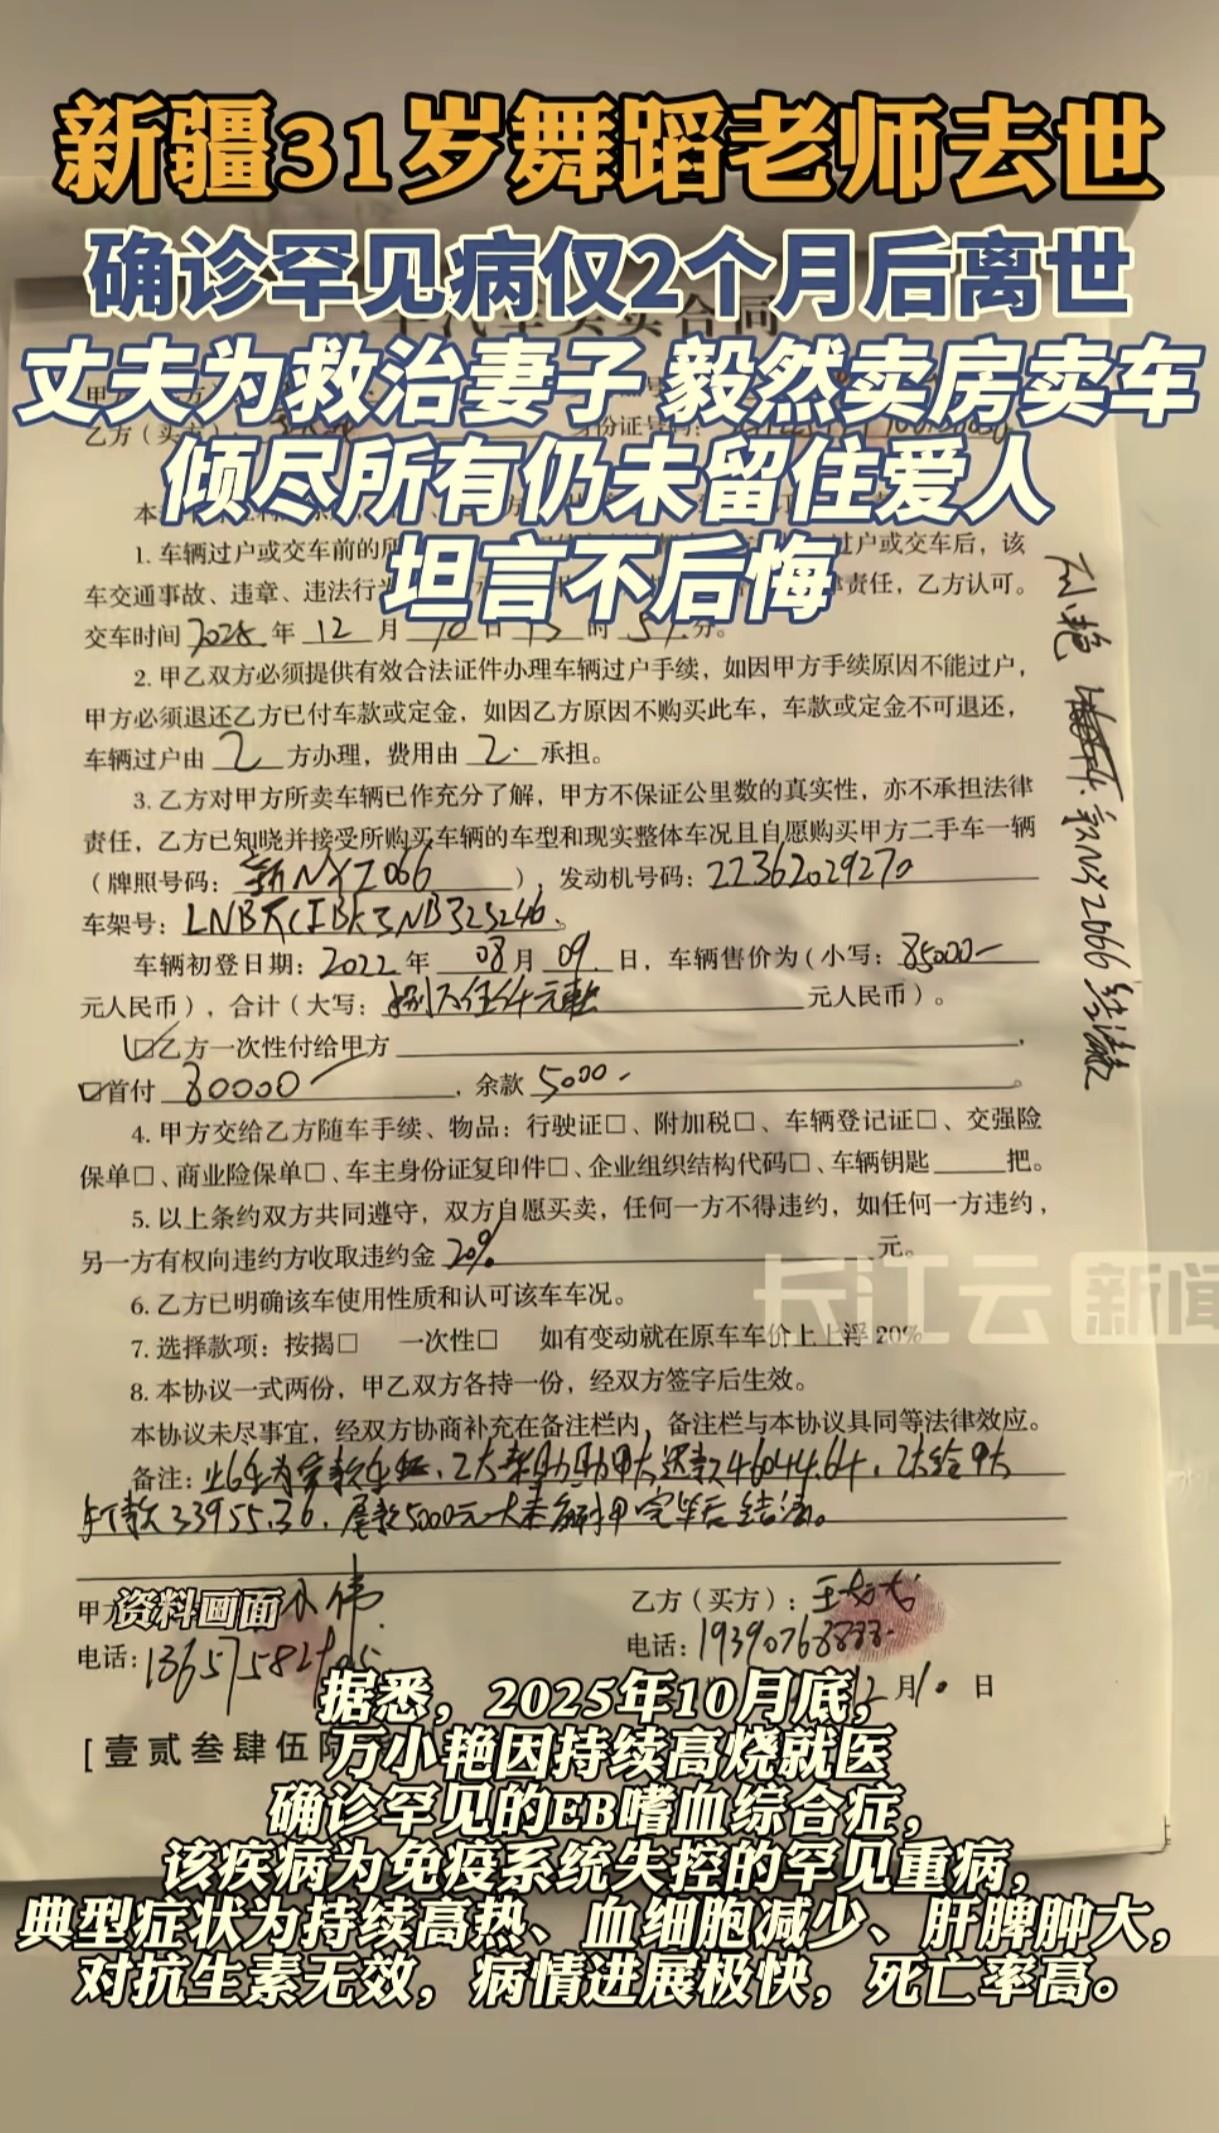 新疆31岁舞蹈老师去世
确诊罕见病仅2个月后离世
丈夫为救治妻子 毅然卖房卖车
倾尽所有仍未留住爱人
坦言不后悔
乙方（买方）：
1. 车辆过户或交车前的所 过户或交车后，该
车交通事故、违章、违法行 责任，乙方认可。
交车时间 2025 年 12 月 10 日 15 时 51 分。
2. 甲乙双方必须提供有效合法证件办理车辆过户手续，如因甲方手续原因不能过户，
甲方必须退还乙方已付车款或定金，如因乙方原因不购买此车，车款或定金不可退还，
车辆过户由 乙 方办理，费用由 乙 承担。
3. 乙方对甲方所卖车辆已作充分了解，甲方不保证公里数的真实性，亦不承担法律
责任，乙方已知晓并接受所购买车辆的车型和现实整体车况且自愿购买甲方二手车一辆
（牌照号码： ），发动机号码：22362029270
车架号：
车辆初登日期：2022 年 08 月 09 日，车辆售价为（小写：85000
元人民币），合计（大写： 元人民币）。
□乙方一次性付给甲方
□首付 80000 ，余款 5000
4. 甲方交给乙方随车手续、物品：行驶证□、附加税□、车辆登记证□、交强险
保单□、商业险保单□、车主身份证复印件□、企业组织结构代码□、车辆钥匙 把。
5. 以上条约双方共同遵守，双方自愿买卖，任何一方不得违约，如任何一方违约，
另一方有权向违约方收取违约金 20% 元。
6. 乙方已明确该车使用性质和认可该车车况。
7. 选择款项：按揭□ 一次性□ 如有变动就在原车车价上上浮 20%
8. 本协议一式两份，甲乙双方各持一份，经双方签字后生效。
本协议未尽事宜，经双方协商补充在备注栏内，备注栏与本协议具同等法律效应。
备注： 还款46044.64
款33955.36，尾款5000元 解押完毕后结清。
长江云 新闻
资料画面
乙方（买方）：
电话：
电话：
月10日
[壹贰叁肆伍
据悉，2025年10月底，
万小艳因持续高烧就医
确诊罕见的EB嗜血综合症，
该疾病为免疫系统失控的罕见重病，
典型症状为持续高热、血细胞减少、肝脾肿大，
对抗生素无效，病情进展极快，死亡率高。